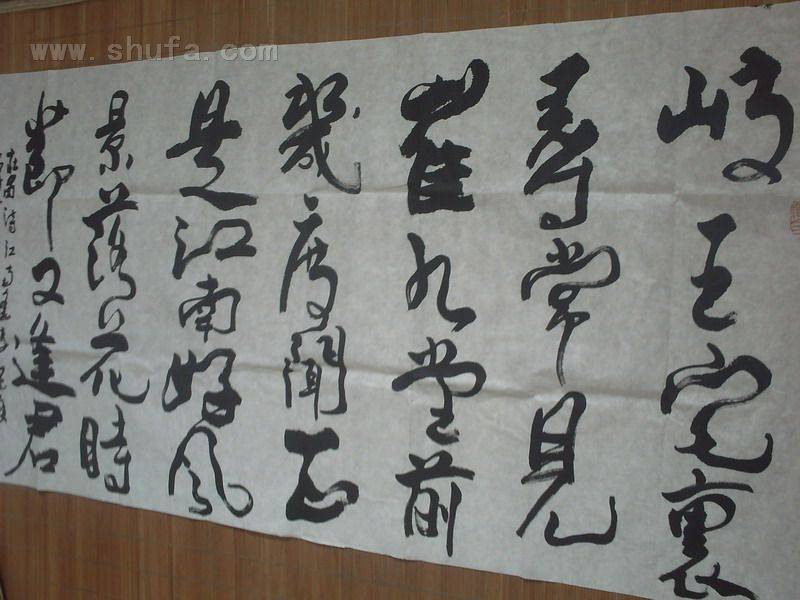 岐王宅裏
尋常見
崔九堂前
幾度聞正
是江南好風
景落花時
節又逢君
www.shufa.com